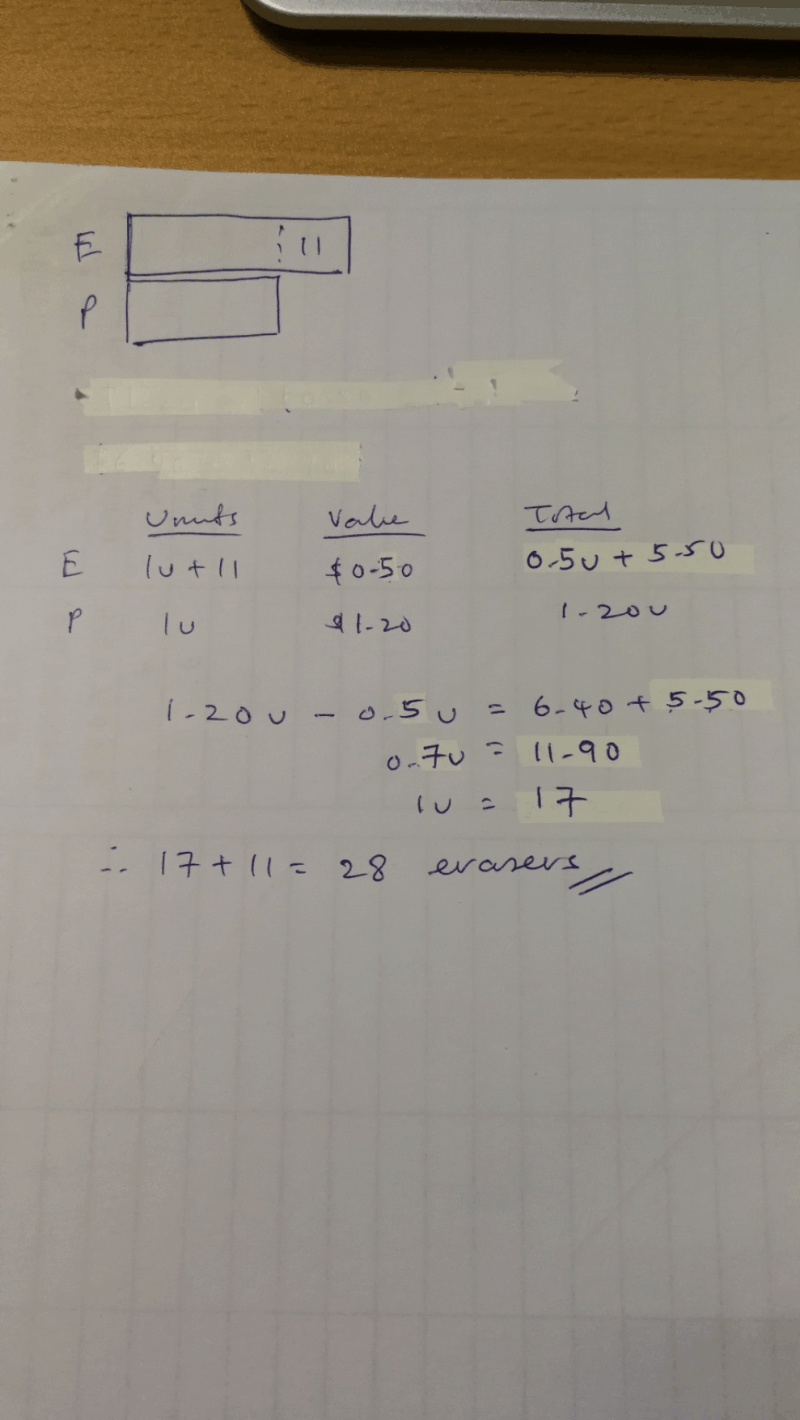 E 11
P
Units Value Total
E 1u + 11 $0-50 0-5u + 5-50
P 1u $1-20 1-20u
1-20u - 0-5u = 6-40 + 5-50
0-7u = 11-90
1u = 17
∴ 17 + 11 = 28 erasers